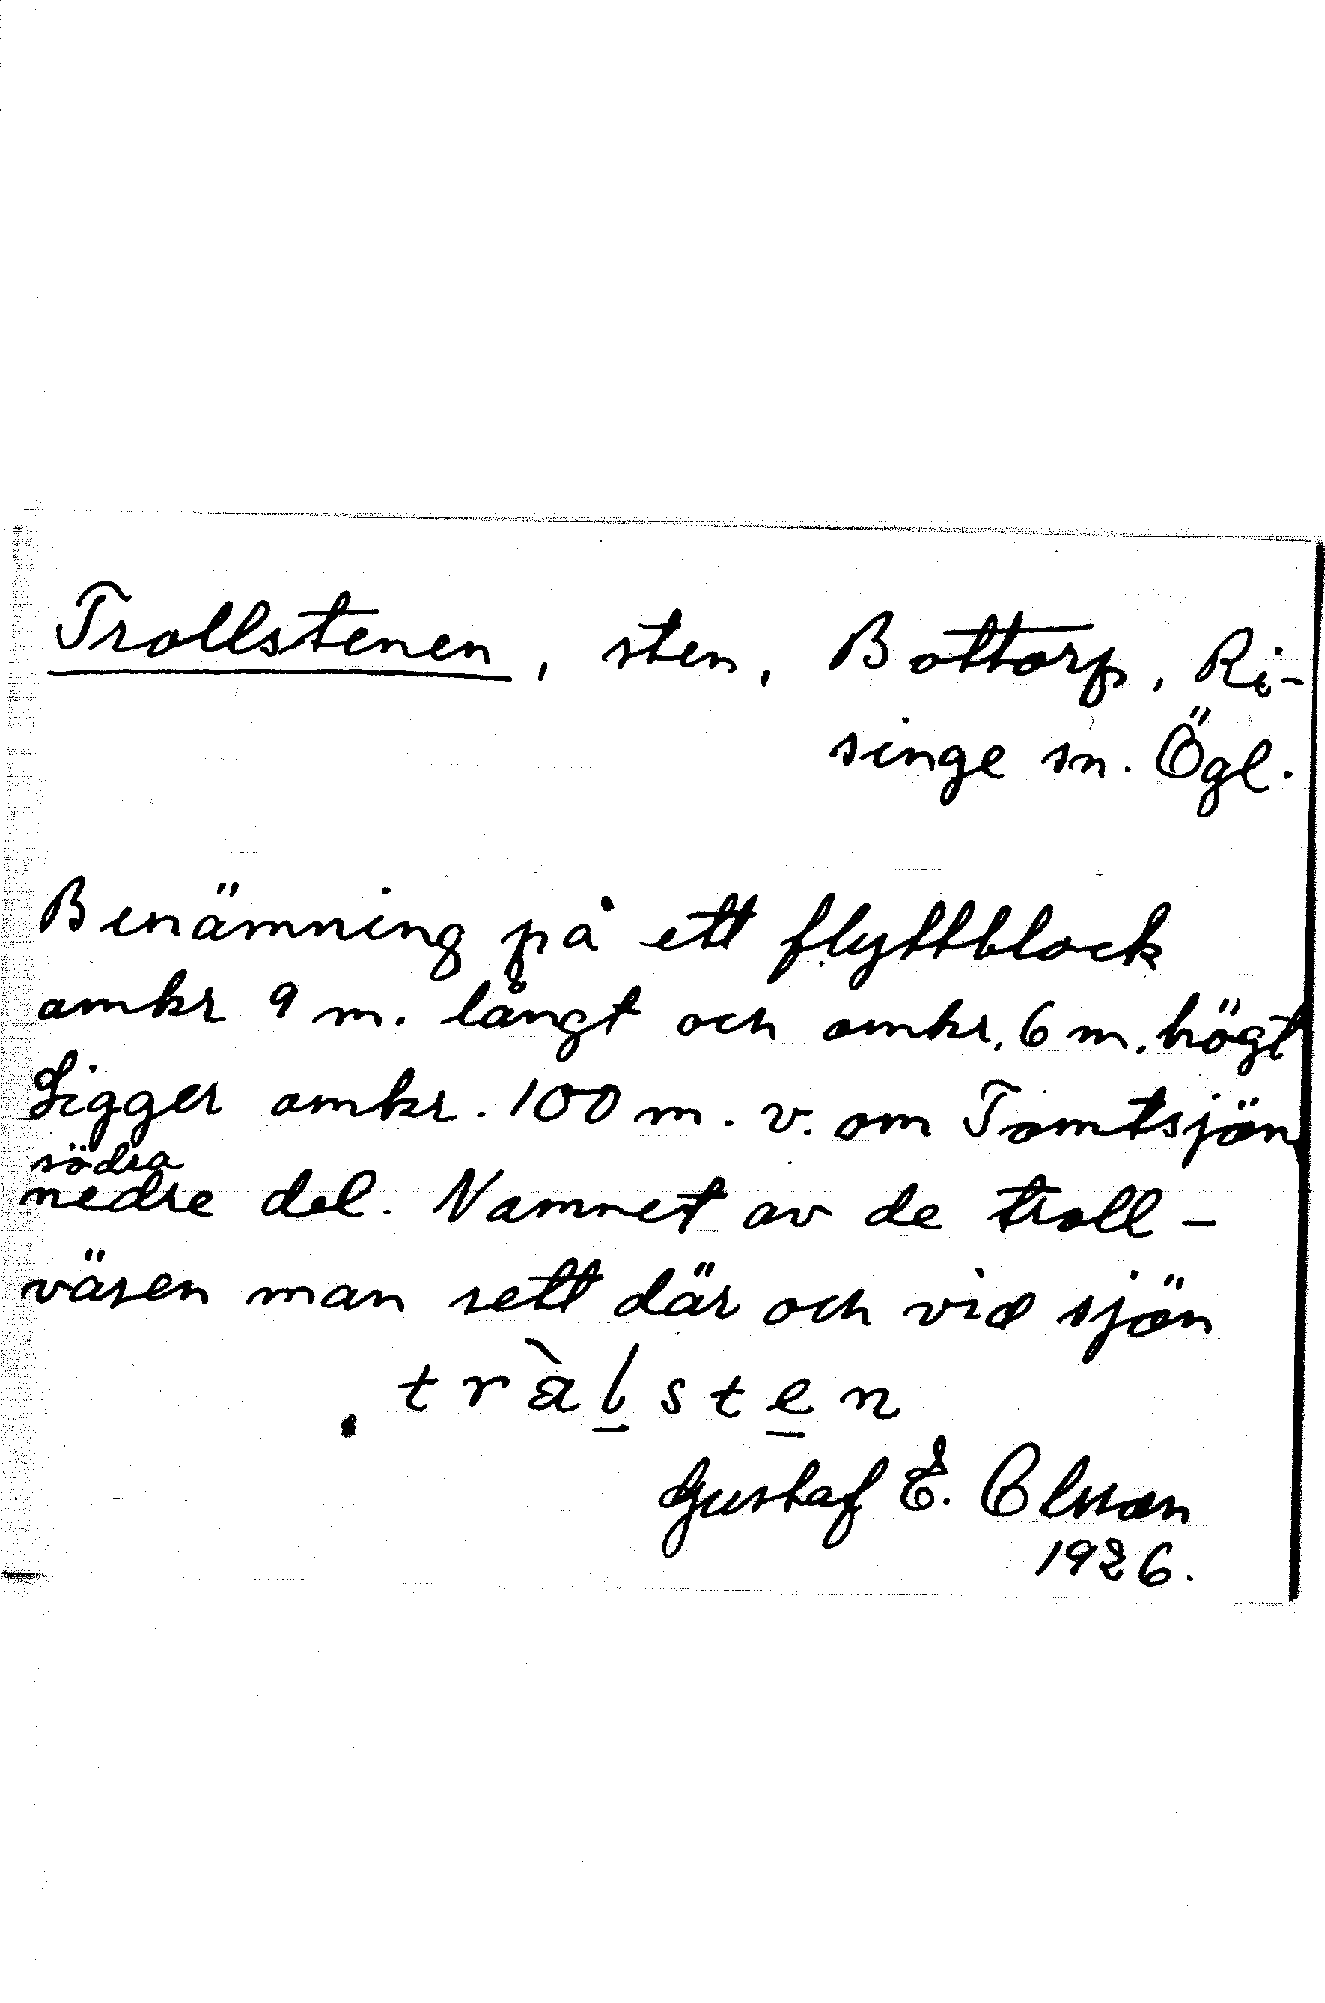 Trollstenen, sten, Bottorp, Ri-
singe sn. Ögl.
Benämning på ett flyttblock
omkr 9 m. långt och omkr. 6 m. högt
Ligger omkr. 100 m. v. om Tomtsjön
södra
nedre del. Namnet av de troll-
väsen man sett där och vid sjön
tràlsten
Gustaf E. Olsson
1926.